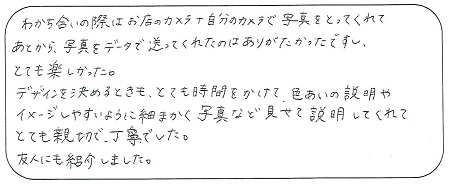 わかち合いの際はお店のカメラ+自分のカメラで写真をとってくれて
あとから、写真をデータで送ってくれたのはありがたかったですし、
とても楽しかった。
デザインを決めるときも、とても時間をかけて、色あいの説明や
イメージしやすいように細まかく写真など見せて説明してくれて
とても親切で、丁寧でした。
友人にも紹介しました。